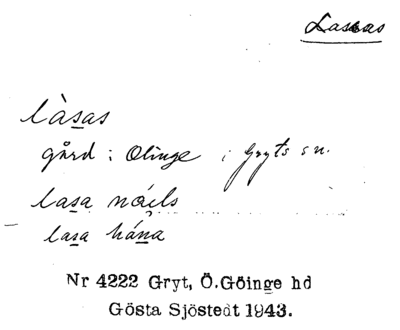 Lassas
làsas
gård i Olinge i Gryts sn.
lasa nåels
lasa hána
Nr 4222 Gryt, Ö.Göinge hd
Gösta Sjöstedt 1943.